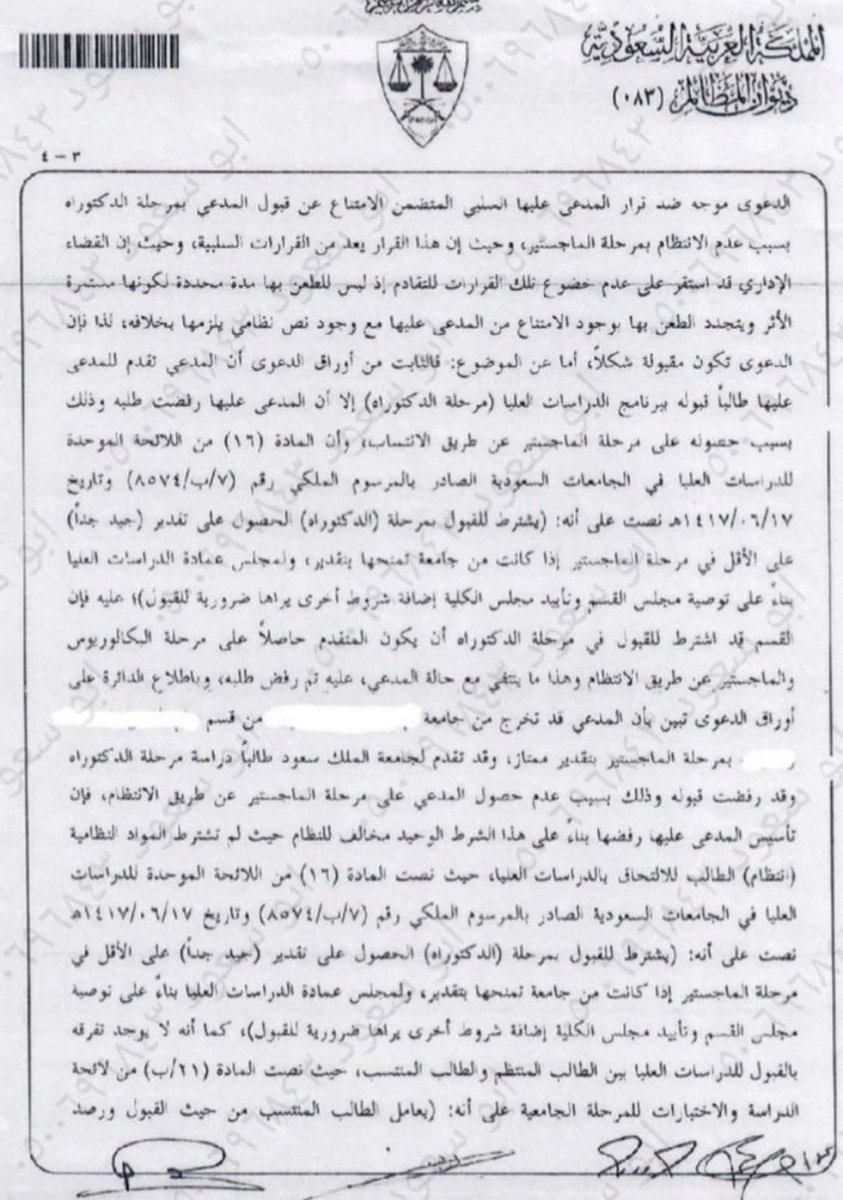 المملكة العربية السعودية
ديوان المظالم (٠٨٣)
٣ - ٤
الدعوى موجه ضد قرار المدعى عليها السلبي المتضمن الامتناع عن قبول المدعي بمرحلة الدكتوراه
بسبب عدم الانتظام بمرحلة الماجستير، وحيث إن هذا القرار يعد من القرارات السلبية، وحيث إن القضاء
الإداري قد استقر على عدم خضوع تلك القرارات للتقادم إذ ليس للطعن بها مدة محددة لكونها مستمرة
الأثر ويتجدد الطعن بها بوجود الامتناع من المدعى عليها مع وجود نص نظامي يلزمها بخلافه، لذا فإن
الدعوى تكون مقبولة شكلاً، أما عن الموضوع: فالثابت من أوراق الدعوى أن المدعي تقدم للمدعى
عليها طالباً قبوله ببرنامج الدراسات العليا (مرحلة الدكتوراه) إلا أن المدعى عليها رفضت طلبه وذلك
بسبب حصوله على مرحلة الماجستير عن طريق الانتساب، وأن المادة (١٦) من اللائحة الموحدة
للدراسات العليا في الجامعات السعودية الصادر بالمرسوم الملكي رقم (٧/ب/٨٥٧٤) وتاريخ
١٤١٧/٠٦/١٧هـ نصت على أنه: (يشترط للقبول بمرحلة (الدكتوراه) الحصول على تقدير (جيد جداً)
على الأقل في مرحلة الماجستير إذا كانت من جامعة تمنحها بتقدير، ولمجلس عمادة الدراسات العليا
بناءً على توصية مجلس القسم وتأييد مجلس الكلية إضافة شروط أخرى يراها ضرورية للقبول)؛ عليه فإن
القسم قد اشترط للقبول في مرحلة الدكتوراه أن يكون المتقدم حاصلاً على مرحلة البكالوريوس
والماجستير عن طريق الانتظام وهذا ما ينتفي مع حالة المدعي، عليه تم رفض طلبه، وباطلاع الدائرة على
أوراق الدعوى تبين بأن المدعي قد تخرج من جامعة من قسم
بمرحلة الماجستير بتقدير ممتاز، وقد تقدم لجامعة الملك سعود طالباً دراسة مرحلة الدكتوراه
وقد رفضت قبوله وذلك بسبب عدم حصول المدعي على مرحلة الماجستير عن طريق الانتظام، فإن
تأسيس المدعى عليها رفضها بناءً على هذا الشرط الوحيد مخالف للنظام حيث لم تشترط المواد النظامية
(انتظام) الطالب للالتحاق بالدراسات العليا، حيث نصت المادة (١٦) من اللائحة الموحدة للدراسات
العليا في الجامعات السعودية الصادر بالمرسوم الملكي رقم (٧/ب/٨٥٧٤) وتاريخ ١٤١٧/٠٦/١٧هـ
نصت على أنه: (يشترط للقبول بمرحلة (الدكتوراه) الحصول على تقدير (جيد جداً) على الأقل في
مرحلة الماجستير إذا كانت من جامعة تمنحها بتقدير، ولمجلس عمادة الدراسات العليا بناءً على توصية
مجلس القسم وتأييد مجلس الكلية إضافة شروط أخرى يراها ضرورية للقبول)، كما أنه لا يوجد تفرقه
بالقبول للدراسات العليا بين الطالب المنتظم والطالب المنتسب، حيث نصت المادة (٢١/ب) من لائحة
الدراسة والاختبارات للمرحلة الجامعية على أنه: (يعامل الطالب المنتسب من حيث القبول ورصد